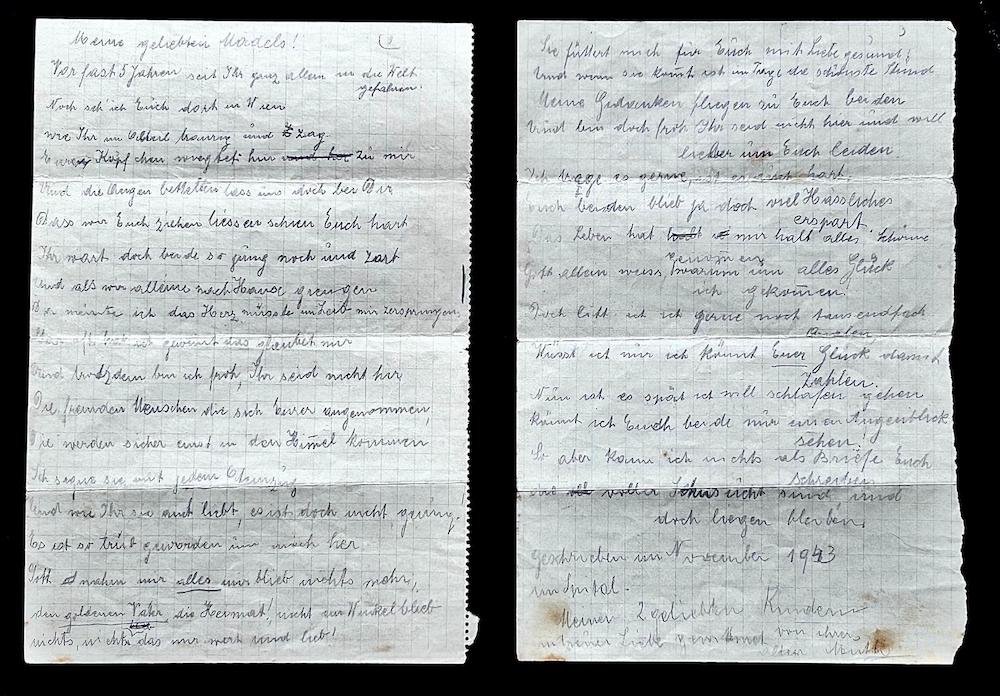 Meine geliebten Mädels!
2
Vor fast 5 Jahren seit Ihr ganz allein in die Welt
gefahren.
Noch seh' ich Euch dort in Wien
wie Ihr im Abteil traurig und zag
Eure Köpfchen wieget hin und her zu mir
Und die Augen bettelten lass uns doch bei Dir
Dass wir Euch ziehen liessen schien Euch hart
Ihr wart doch beide so jung noch und zart
Und als wir alleine nach Hause giengen
Da meinte ich das Herz müsste im Leib mir zerspringen,
oft hab ich geweint das glaubet mir
Und trotzdem bin ich froh, Ihr seid nicht hir
Die fremden Menschen die sich Eurer angenommen,
Die werden sicher einst in den Himmel kommen,
Ich segne sie mit jedem Atemzug
Und wie Ihr sie auch liebt, es ist doch nicht genug.
Es ist so trüb geworden um mich her
Gott nahm mir alles mir blieb nichts mehr,
den goldenen Vater, die Heimat, nicht ein Winkel blieb
nichts, nichts das mir wert und lieb!
3
Sie füttert mich für Euch mit Liebe gesund,
Und wenn sie kommt ist im Tage die schönste Stund
Meine Gedanken fliegen zu Euch beiden
Und bin doch froh Ihr seid nicht hier und will
lieber um Euch leiden
Ich trage es gerne, ist es auch hart,
Euch beiden blieb ja doch viel Hässliches
erspart.
Das Leben hat mir halt alles Schöne
genommen
Gott allein weiss, warum um alles Glück
ich gekommen.
Doch litt ich gerne noch tausendfach
Qualen
Wüsst ich nur ich könnt Euer Glück damit
zahlen.
Nun ist es spät ich will schlafen gehen
könnt ich Euch beide nur einen Augenblick
sehen!
So aber kann ich nichts als Briefe Euch
schreiben
die voller Sehnsucht sind und
doch liegen bleiben.
geschrieben im November 1943
im Spital.
Meinen 2 geliebten Kindern
in Liebe von ihrer